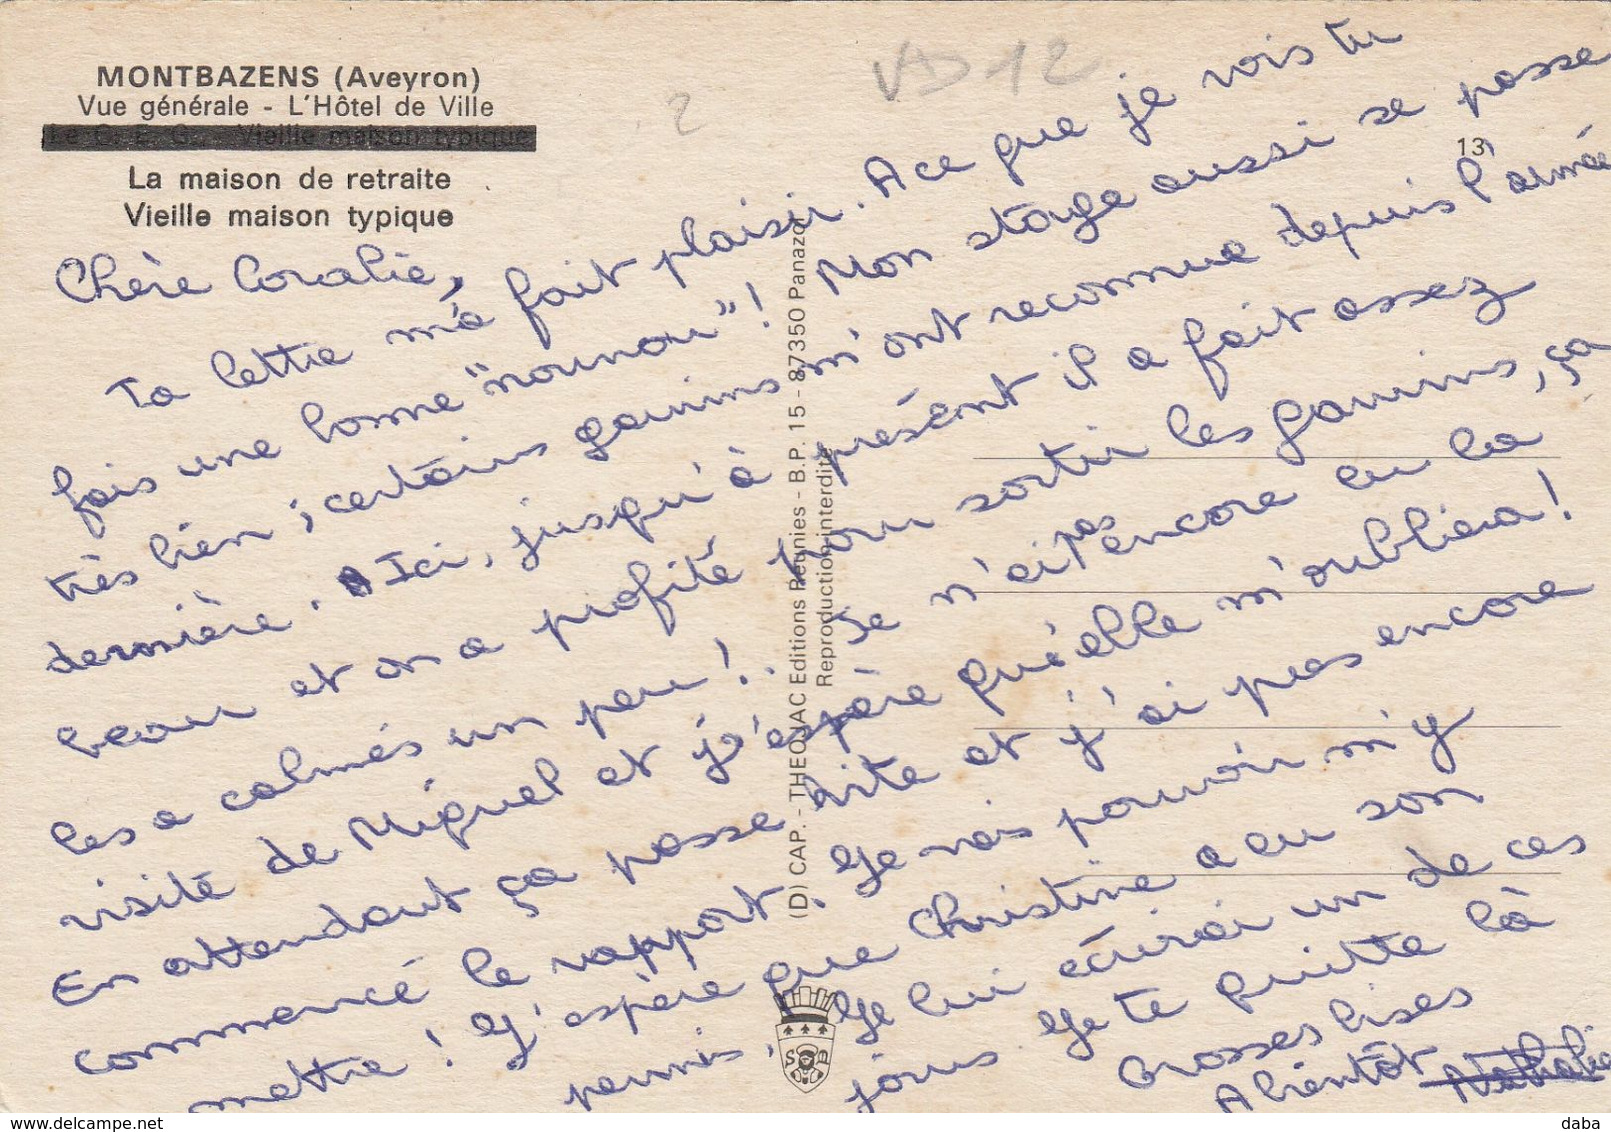 MONTBAZENS (Aveyron)
Vue générale - L'Hôtel de Ville
Le C. E. G. - Vieille maison typique
La maison de retraite
Vieille maison typique
VD 12
2
13
Chère Coralie,
Ta lettre m'a fait plaisir. A ce que je vois tu
fais une bonne "nounou"! Mon stage aussi se passe
très bien ; certains gamins m'ont reconnue depuis l'année
dernière. Ici, jusqu'à présent il a fait assez
beau et on a profité pour sortir les gamins, ça
les a calmés un peu !.. Je n'ai pas encore eu la
visite de Miguel et j'espère qu'elle m'oubliera !
En attendant ça passe vite et j'ai pas encore
commencé le rapport. Je vais pouvoir m'y
mettre ! J'espère que Christine a eu son
permis. Je lui écrirai un de ces
jours. Je te quitte là
Grosses bises
A bientôt Nathalie
(D) CAP. - THEOJAC Editions Réunies - B.P. 15 - 87350 Panazol
Reproduction interdite
delcampe.net
daba